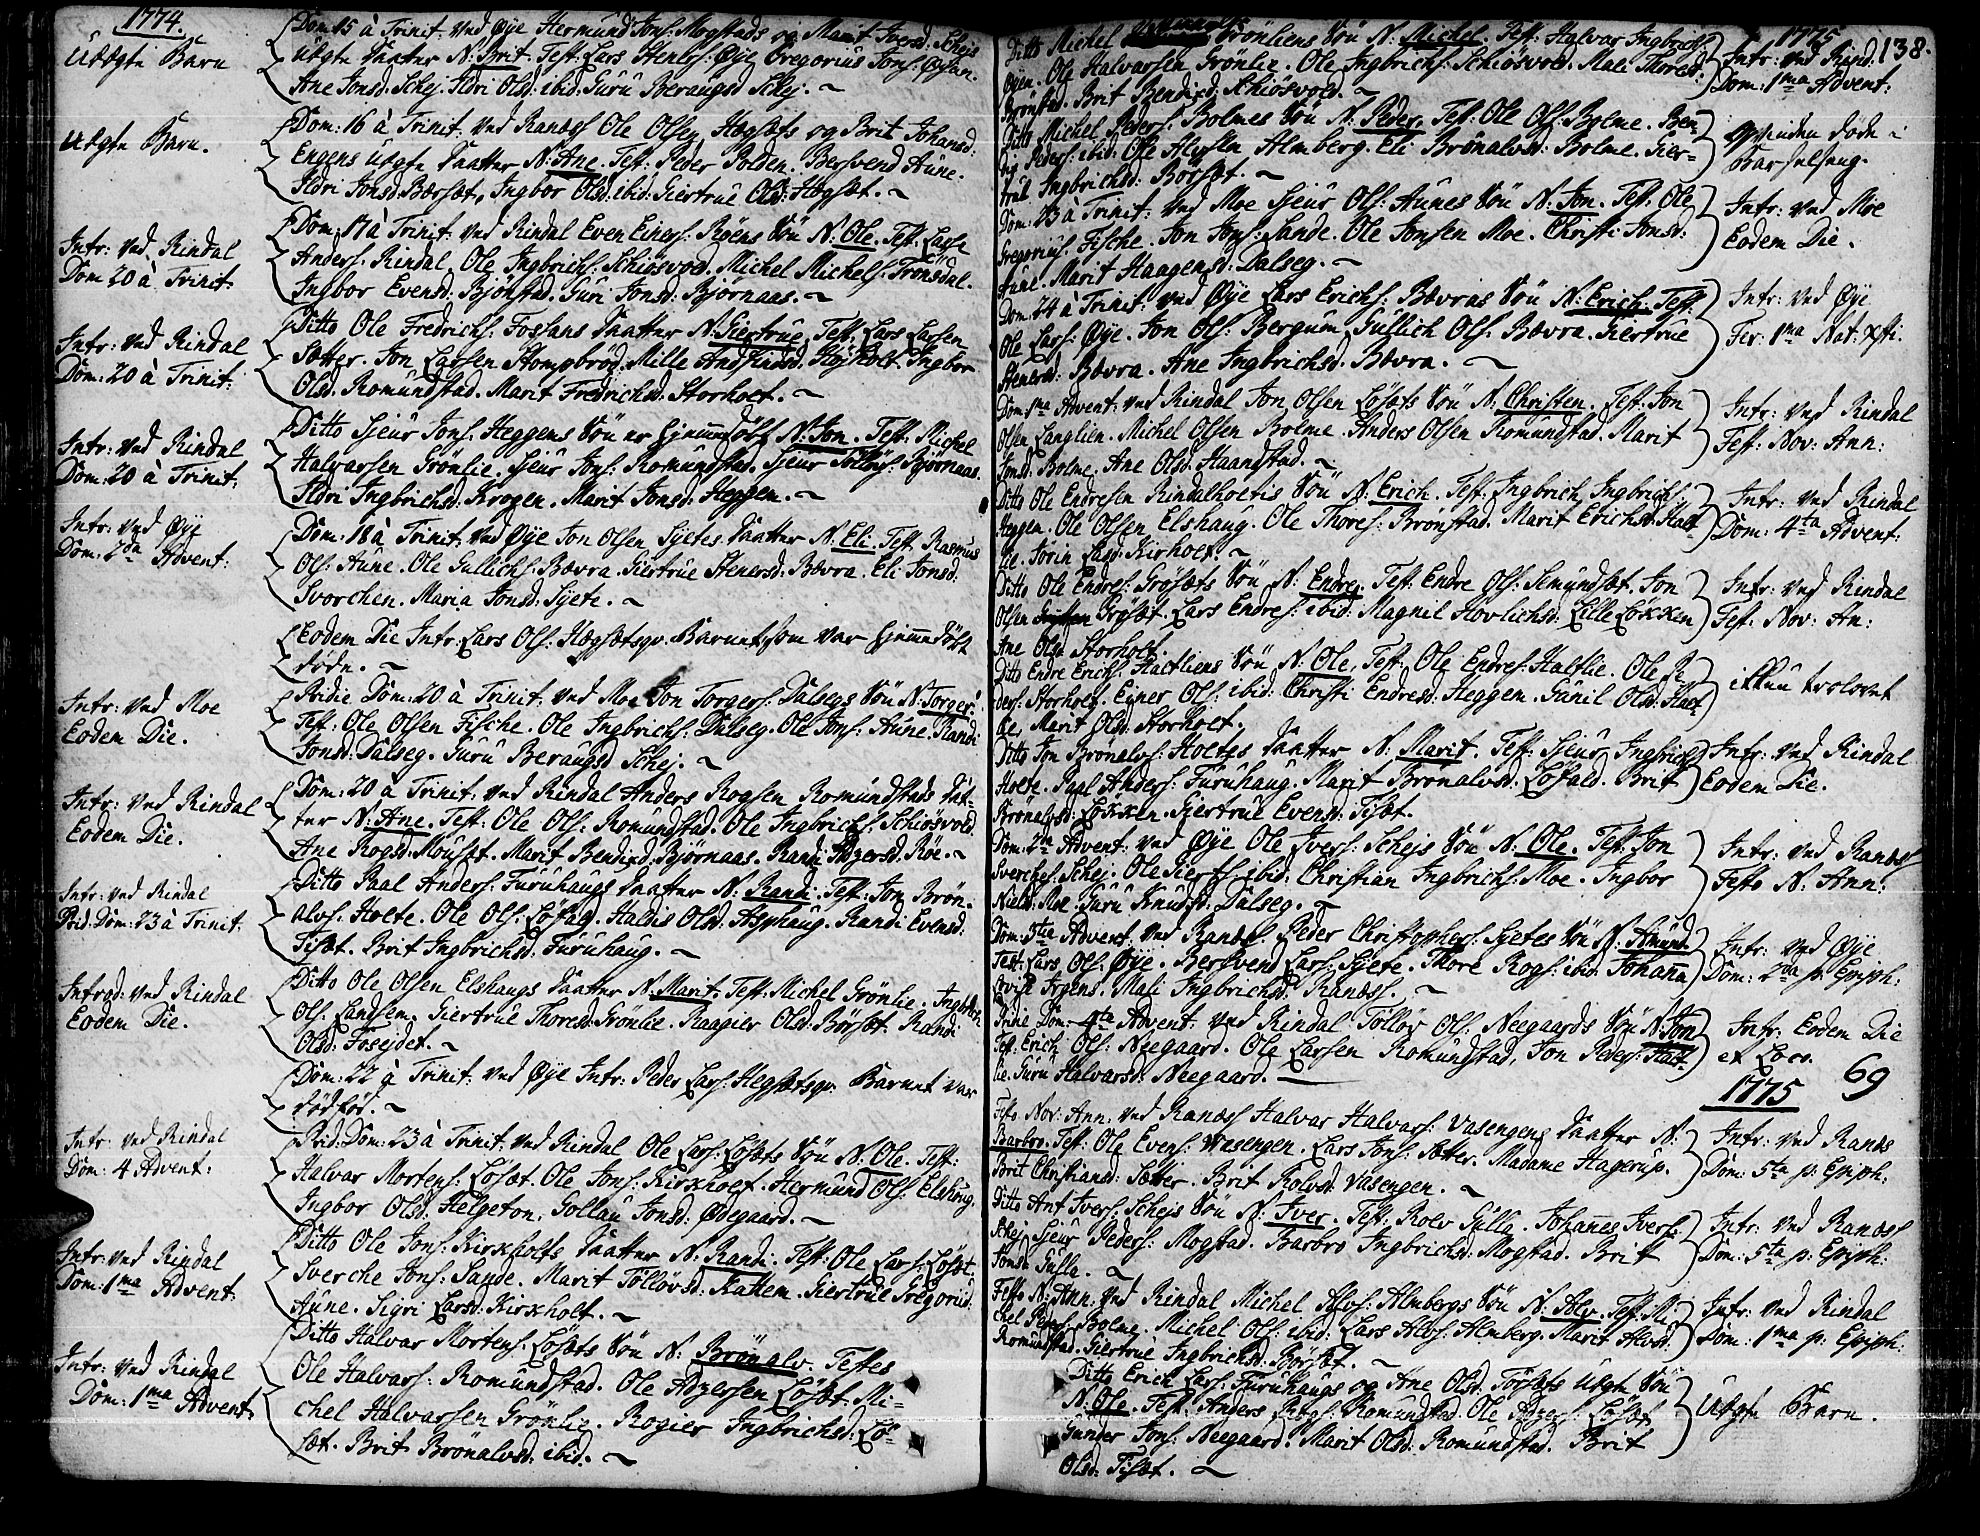 1774.
Uægte Barn
Dom: 15 à Trinit. ved Øye Hermund Jons: Mogstads og Marit Iversd: Schejs
uægte Daatter N: Brit. Test: Lars Steners: Øye Gregorius Jons: Øyen.
Ane Jonsd: Schej. Ildri Olsd: ibid: Guru Beraugsd Schej. ~
Uægte Barn.
Dom: 16 à Trinit. ved Ranæs Ole Olsen Hægsæts og Brit Johansd:
Engens uægte Daatter N: Ane. Test: Peder Polden. Bersvend Aune.
Ildri Jonsd: Bærsæt, Ingbor Olsd: ibid: Giertrue Olsd: Hægsæt. ~
Intr: ved Rindal
Dom 20 à Trinit.
Dom: 17 à Trinit. ved Rindal Even Einers: Røens Søn N: Ole. Test: Lars
Anders: Rindal. Ole Ingbrichs: Schiøsvold. Michel Michels: Tronsdal.
Ingbor Evensd: Bjønstad. Guri Jonsd: Bjørnaas. ~
Intr: ved Rindal
Dom: 20 à Trinit:
Ditto Ole Fredrichs: Fossans Daatter N: Giertrue, Test: Lars Larsen
Sætter. Jon Larsen Stomprød. Mille Andfindsd: Høiholt. Ingbor
Olsd: Romundstad. Marit Fredrichsd: Storholt. ~
Intr: ved Rindal
Dom: 20 à Trinit:
Ditto Sjeur Jons: Heggens Søn er hjemmedøbt N: Jon. Test: Michel
Halvarsen Grönlie. Sjeur Jons: Romundstad. Sjeur Tölløvs: Bjørnaas.
Ildri Ingbrichsd: Krogen. Marit Jonsd: Heggen. ~
Intr: ved Øye
Dom: 2da Advent:
Dom: 18 à Trinit: ved Øye Jon Olsen Sjetes Daatter N: Eli. Test: Rasmus
Ols: Aune. Ole Gullichs: Bævra. Giertrue Stenersd: Bævra. Eli Jonsd:
Svorchen. Maria Jonsd: Sjete. ~
Eodem Die Intr: Lars Ols: Hægsætsqv. Barnet som var hjemmedøbt
døde. ~
Intr: ved Moe
Eodem Die.
Pridie Dom: 20 à Trinit. ved Moe Jon Torgers: Dalsegs Søn N: Torger.
Test: Ole Olsen Fische. Ole Ingbrichs: Dalseg. Ole Jons: Aune. Randi
Jonsd: Dalseg. Guru Beraugsd Schej. ~
Intr: ved Rindal
Eodem Die.
Dom: 20 à Trinit. ved Rindal Anders Rogsen Romundstads Dat-
ter N: Ane. Test: Ole Ols: Romundstad. Ole Ingbrichs: Schiøsvold
Ane Rogsd: Mouset. Marit Bendixd Bjørnaas. Randi Adzersd: Røe. ~
Intr: ved Rindal
Prid: Dom: 23 à Trinit.
Ditto Paal Anders: Furuhaugs Daatter N: Randi. Test: Jon Brön-
alvs: Holte. Ole Ols: Løfald. Haldis Olsd: Asphaug. Randi Evensd:
Tiset. Brit Ingbrichsd: Furuhaug. ~
Introd: ved Rindal
Eodem Die.
Ditto Ole Olsen Elshaugs Daatter N: Marit. Test: Michel Grönlie. Ingbrich
Ols: Landsem. Giertrue Thoresd: Grönlie. Raagier Olsd: Börset. Randi
Olsd: Fosejdet. ~
Dom: 22 à Trinit: ved Øye Intr: Peder Lars: Hegsætsqv. Barnet var
dödfød. ~
Intr: ved Rindal
Dom: 4 Advent:
Prid: Dom: 23 à Trinit: ved Rindal Ole Lars: Løsæts Søn N: Ole. Test:
Halvar Mortens: Løsæt. Ole Jons: Kirkholt. Hermund Ols: Elshaug.
Ingbor Olsd: Helgeton. Gollau Jonsd: Ødegaard. ~
Intr: ved Rindal
Dom: 1ma Advent:
Ditto Ole Jons: Kirkholts Daatter N: Randi. Test: Ole Lars: Løsæt.
Sverche Jons: Sande. Marit Tölløvsd: Kattem. Giertrue Gregoriid
Aune. Sigri Larsd: Kirkholt. ~
Intr: ved Rindal
Dom: 1ma Advent:
Ditto Halvar Mortens: Løsæts Søn N: Brönalv. Testes
Ole Halvars: Romundstad. Ole Adzersen Løsæt. Mi-
chel Halvarsen Grönlie. Rogier Ingbrichsd: Lö-
sæt. Brit Brönalvsd: ibid. ~
1775 138.
Ditto Michel Grönliens Søn N: Michel. Test: Halvar Ingbrichs:
Øyen. Ole Halvarsen Grönlie. Ole Ingbrichs: Schiösvold. Mali Thoresd:
Brönstad. Brit Bendixd: Schiösvold. ~
Intr: ved Rind:
Dom: 1ma Advent:
Ditto Michel Peders: Bolmes Søn N: Peder. Test: Ole Ols: Bolme. Ben
dig Peders: ibid: Ole Alvsen Almberg. Eli Brönalvsd: Bolme. Gier-
trud Ingbrichsd: Börsæt. ~
Qvinden døde i
Barselseng.
Dom: 23 à Trinit: ved Moe Sjeur Ols: Aunes Søn N: Jon. Test: Ole
Gregorius: Fische. Jon Jons: Sande. Ole Jonsen Moe. Christi Jonsd:
Aune. Marit Haagensd: Dalseg. ~
Intr: ved Moe
Eodem Die.
Dom: 24 à Trinit: ved Øye Lars Erichs: Bævras Søn N: Erich. Test:
Ole Lars: Øye. Jon Ols: Bergum, Gullich Ols: Bævra. Giertrue
Stenersd: Bævra. Ane Ingbrichsd: Bævra. ~
Intr: ved Øye
Fer: 1ma Nat: Xsti.
Dom: 1ma Advent: ved Rindal Jon Olsen Løsæts Søn N: Christen. Test: Jon
Olsen Langlien. Michel Olsen Bolme. Anders Olsen Romundstad. Marit
Jonsd: Bolme. Ane Olsd: Haandstad. ~
Intr: ved Rindal
Fest: Nov: Ann:
Ditto Ole Endresen Rindalholtis Søn N: Erich. Test: Ingbrich Ingbrichs:
Heggen. Ole Olsen Elshaug. Ole Thores: Brönstad. Marit Erichsd: Halt
lie. Jorin Larsd: Kirholt. ~
Intr: ved Rindal
Dom: 4ta Advent:
Ditto Ole Endres: Grösæts Søn N: Endre. Test: Endre Ols: Semundsæt. Jon
Olsen Grösæt. Lars Endres: ibid: Magnil Hovlichsd: Lille Løkken
Ane Olsd Storholt.
Intr: ved Rindal
Fest: Nov: An:
Ditto Endre Erichs: Haltliens Søn N: Ole, Test: Ole Endres: Haltlie. Ole Pe
ders: Storholt. Einer Ols: ibid: Christi Endresd: Heggen. Gunil Olsd: Halt
lie, Marit Olsd: Storholt.
ikke troloved
Ditto Jon Brönalvs: Holtes Daatter N: Marit. Test: Sjeur Ingbrichs:
Holte. Paal Anders: Furuhaug. Marit Brönalvsd: Löfald. Brit
Brönalvsd: Løkken. Giertrue Evensd: Tiset.
Intr: ved Rindal
Eodem Die.
Dom: 2da Advent: ved Øye Ole Ivers: Schejs Søn N: Ole. Test: Jon
Sverches: Schej. Ole Sierts: ibid: Christian Ingbrichs: Moe. Ingbor
Nielsd: Moe. Guru Knudsd: Dalseg. ~
Intr: ved Ranæs
Festo N: Ann:
Dom: 3tia Advent: ved Ranæs Peder Christophers: Sjetes Søn N: Amund.
Test: Lars Ols: Øye. Bersvend Lars: Sjete. Thore Rogs: ibid: Johanna
Lovise Irgens. Mali Ingbrichsd: Ranæs. ~
Intr: ved Øye
Dom: 2da p: Epiph:
Pridie Dom: 4ta Advent: ved Rindal Tölløv Ols: Neegaards Søn N: Jon
Test: Erich Ols: Neegaard. Ole Larsen Romundstad, Jon Peders: Halt-
lie. Guru Halvarsd: Neegaard.
Intr: Eodem Die
et Loco.
1775 69
Festo Nov: Ann: ved Ranæs Halvar Halvars: Vasengens Daatter N:
Barbro. Test: Ole Evens: Wasengen. Lars Jons: Sætter. Madame Hagerup.
Brit Christiansd: Sætter. Brit Rolvsd: Vasengen. ~
Intr: ved Ranæs
Dom: 5ta p: Epiph:
Ditto Ant Ivers: Schejs Søn N: Iver. Test: Rolv Gulla. Johannes Ivers:
Schej. Sjeur Peders: Mogstad. Barbro Ingbrichsd: Mogstad. Brit
Jonsd: Gulla. ~
Intr: ved Ranæs
Dom: 5ta p: Epiph:
Festo N: Ann. ved Rindal Michel Alvs: Almbergs Søn N: Alv. Test: Mi-
chel Peders: Bolme. Michel Ols: ibid: Lars Alvs: Almberg. Marit Alvsd:
Romundstad. Giertrue Ingbrichsd: Börsæt. ~
Intr: ved Rindal
Dom: 1ma p: Epiph:
Ditto Erich Lars: Furuhaugs og Ane Olsd: Torsæts uægte Søn
N: Ole. Test: Anders Rogs: Romundstad. Ole Adzers: Løsæt
Gunder Jons: Neegaard. Marit Olsd: Romundstad. Brit
Olsd: Tiset. ~
Uægte Barn.